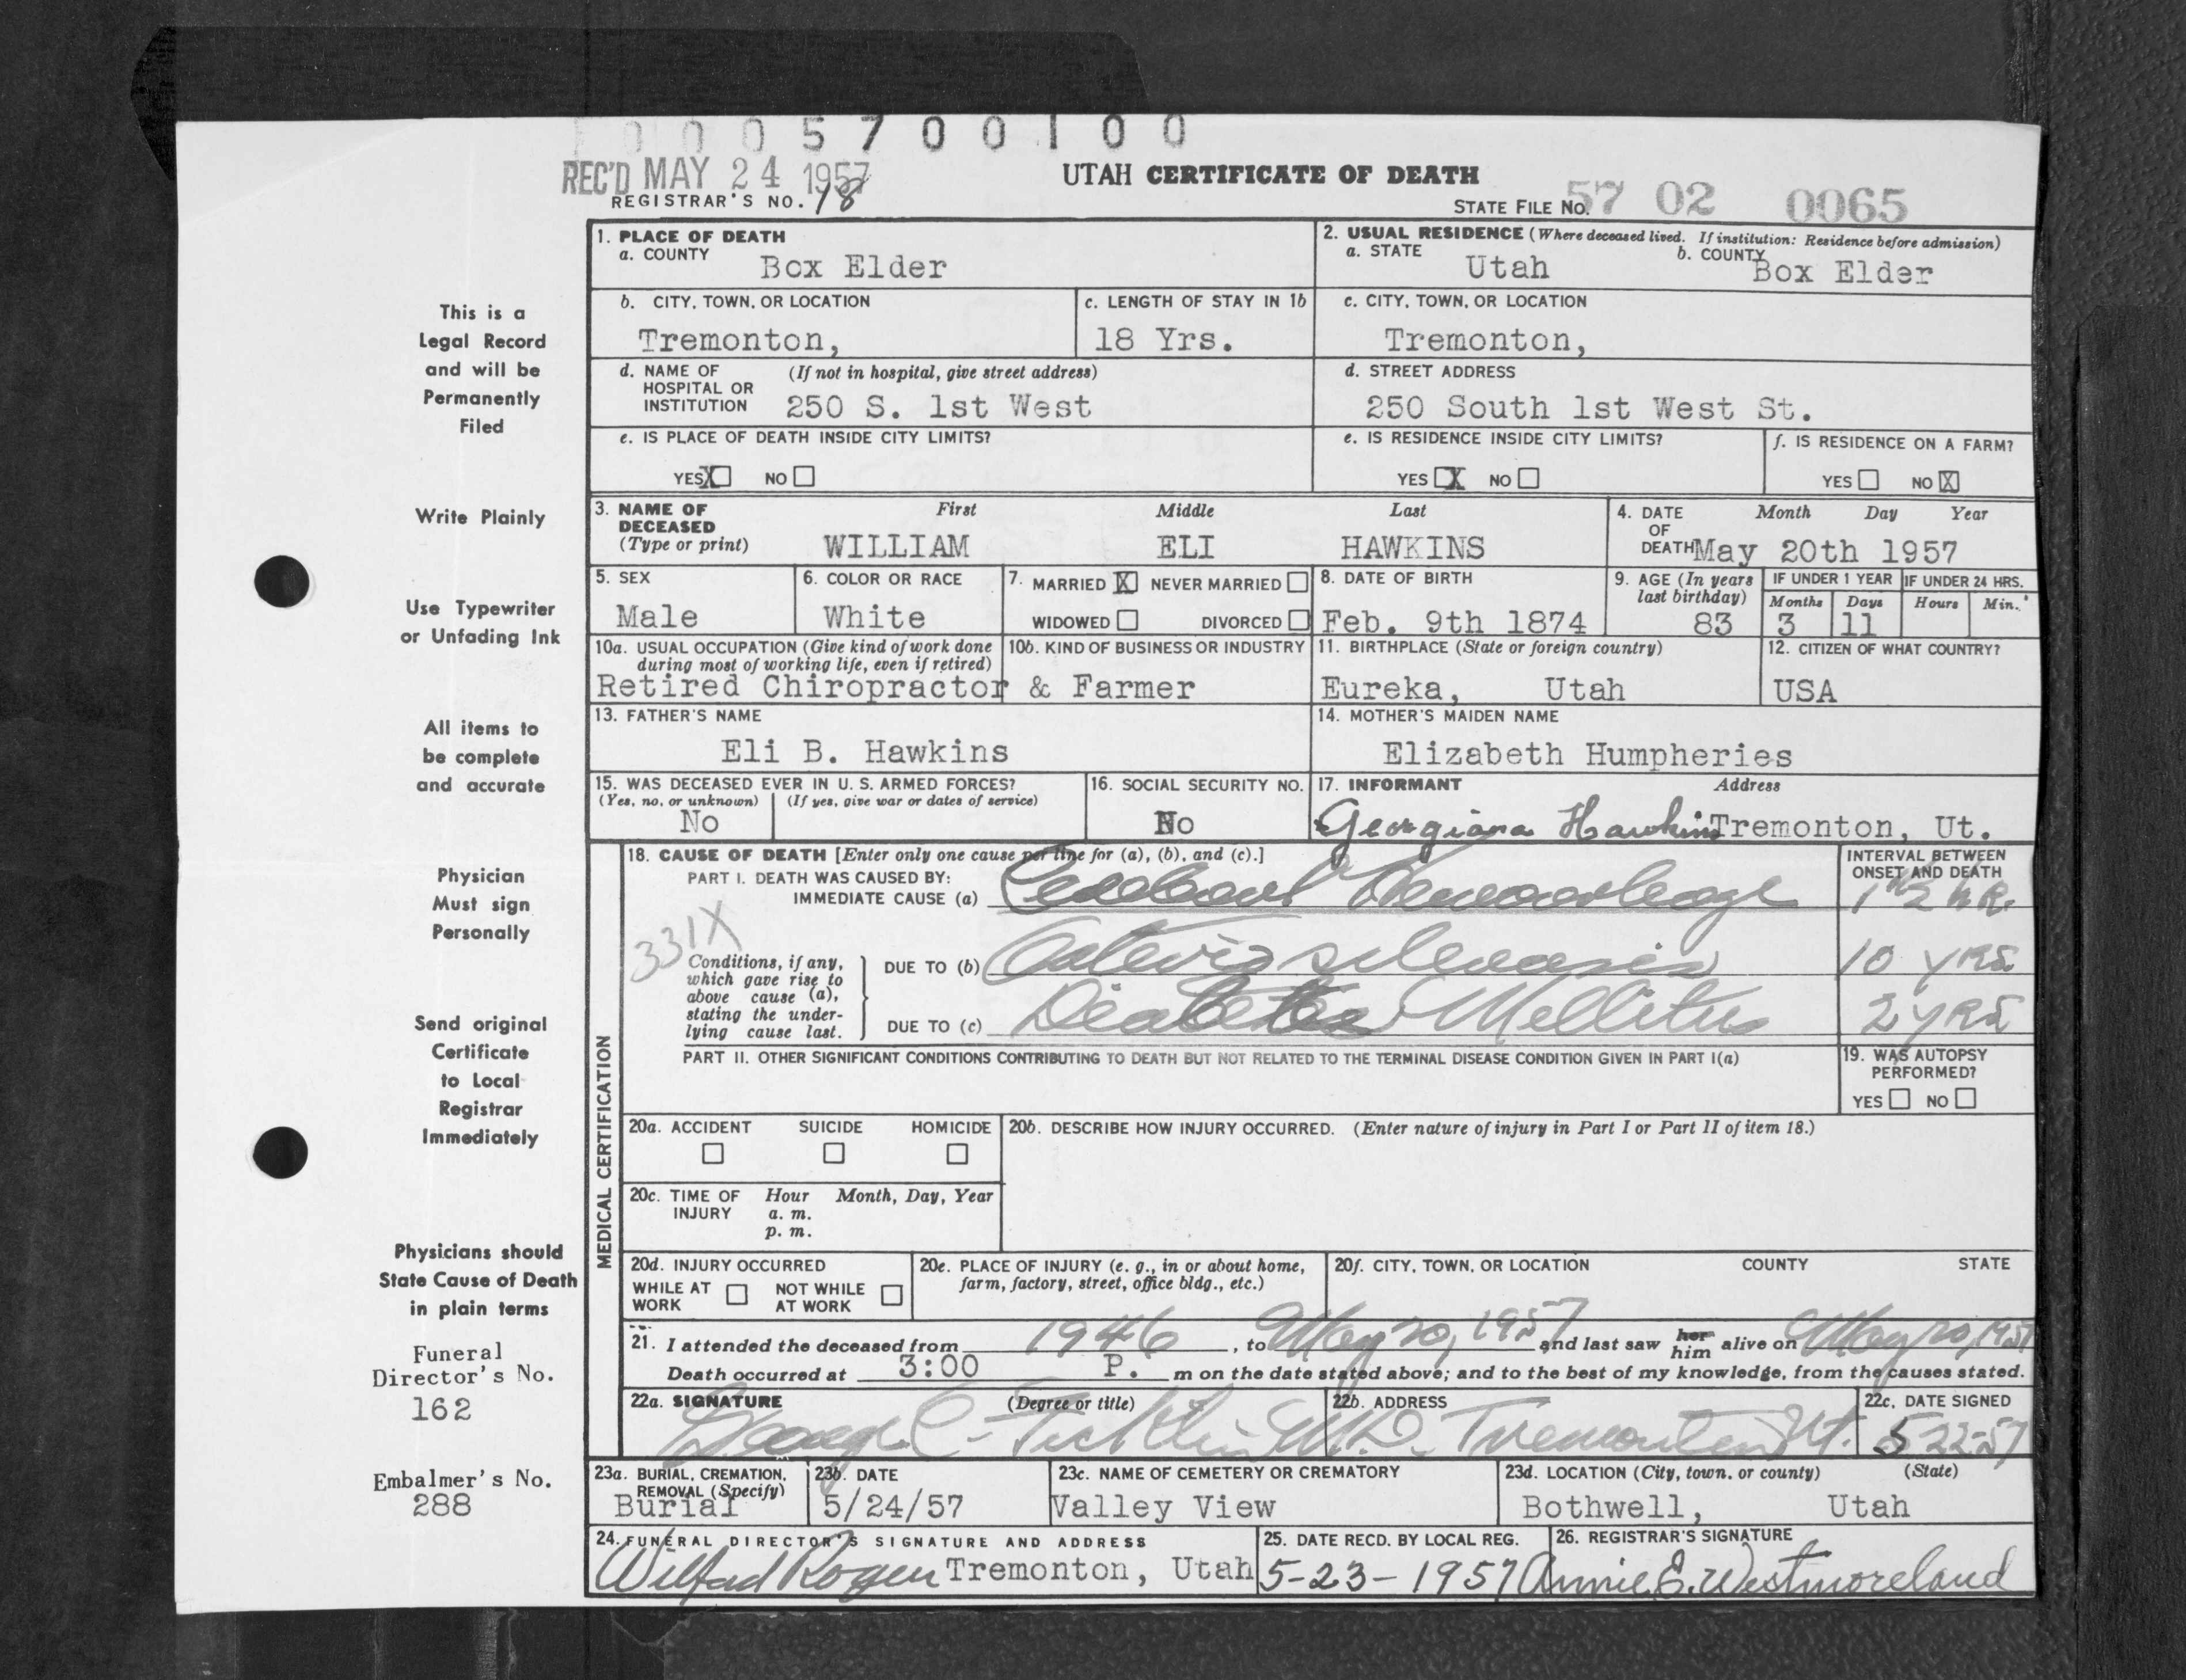 0 0 0 5 7 0 0 1 0 0
REC'D MAY 24 1957
UTAH CERTIFICATE OF DEATH
REGISTRAR'S NO. 18
STATE FILE NO. 57 02 0065
This is a
Legal Record
and will be
Permanently
Filed
Write Plainly
Use Typewriter
or Unfading Ink
All items to
be complete
and accurate
Physician
Must sign
Personally
Send original
Certificate
to Local
Registrar
Immediately
Physicians should
State Cause of Death
in plain terms
Funeral
Director's No.
162
Embalmer's No.
288
1. PLACE OF DEATH
a. COUNTY Box Elder
2. USUAL RESIDENCE (Where deceased lived. If institution: Residence before admission)
a. STATE Utah b. COUNTY Box Elder
b. CITY, TOWN, OR LOCATION
Tremonton,
c. LENGTH OF STAY IN 1b
18 Yrs.
c. CITY, TOWN, OR LOCATION
Tremonton,
d. NAME OF (If not in hospital, give street address)
HOSPITAL OR
INSTITUTION 250 S. 1st West
d. STREET ADDRESS
250 South 1st West St.
e. IS PLACE OF DEATH INSIDE CITY LIMITS?
YES X NO
e. IS RESIDENCE INSIDE CITY LIMITS?
YES X NO
f. IS RESIDENCE ON A FARM?
YES NO X
3. NAME OF First Middle Last
DECEASED
(Type or print) WILLIAM ELI HAWKINS
4. DATE Month Day Year
OF
DEATH May 20th 1957
5. SEX
Male
6. COLOR OR RACE
White
7. MARRIED X NEVER MARRIED
WIDOWED DIVORCED
8. DATE OF BIRTH
Feb. 9th 1874
9. AGE (In years
last birthday)
83
IF UNDER 1 YEAR IF UNDER 24 HRS.
Months Days Hours Min.
3 11
10a. USUAL OCCUPATION (Give kind of work done
during most of working life, even if retired)
10b. KIND OF BUSINESS OR INDUSTRY
Retired Chiropractor & Farmer
11. BIRTHPLACE (State or foreign country)
Eureka, Utah
12. CITIZEN OF WHAT COUNTRY?
USA
13. FATHER'S NAME
Eli B. Hawkins
14. MOTHER'S MAIDEN NAME
Elizabeth Humpheries
15. WAS DECEASED EVER IN U. S. ARMED FORCES?
(Yes, no, or unknown) (If yes, give war or dates of service)
No
16. SOCIAL SECURITY NO.
No
17. INFORMANT Address
Georgiana Hawkins Tremonton, Ut.
MEDICAL CERTIFICATION
18. CAUSE OF DEATH [Enter only one cause per line for (a), (b), and (c).]
INTERVAL BETWEEN
ONSET AND DEATH
PART I. DEATH WAS CAUSED BY:
IMMEDIATE CAUSE (a) Cerebral Hemorrhage 1 1/2 HR.
331X
Conditions, if any,
which gave rise to
above cause (a),
stating the under-
lying cause last.
DUE TO (b) Arteriosclerosis 10 YRS.
DUE TO (c) Diabetes Mellitus 2 YRS
PART II. OTHER SIGNIFICANT CONDITIONS CONTRIBUTING TO DEATH BUT NOT RELATED TO THE TERMINAL DISEASE CONDITION GIVEN IN PART I(a)
19. WAS AUTOPSY
PERFORMED?
YES NO
20a. ACCIDENT SUICIDE HOMICIDE
20b. DESCRIBE HOW INJURY OCCURRED. (Enter nature of injury in Part I or Part II of item 18.)
20c. TIME OF Hour Month, Day, Year
INJURY a. m.
p. m.
20d. INJURY OCCURRED
WHILE AT NOT WHILE
WORK AT WORK
20e. PLACE OF INJURY (e. g., in or about home,
farm, factory, street, office bldg., etc.)
20f. CITY, TOWN, OR LOCATION COUNTY STATE
21. I attended the deceased from 1946, to May 20, 1957 and last saw her him alive on May 20, 1957
Death occurred at 3:00 P. m on the date stated above; and to the best of my knowledge, from the causes stated.
22a. SIGNATURE (Degree or title)
George C. Ficklin M.D.
22b. ADDRESS
Tremonton Ut.
22c. DATE SIGNED
5-22-57
23a. BURIAL, CREMATION,
REMOVAL (Specify)
Burial
23b. DATE
5/24/57
23c. NAME OF CEMETERY OR CREMATORY
Valley View
23d. LOCATION (City, town, or county) (State)
Bothwell, Utah
24. FUNERAL DIRECTOR'S SIGNATURE AND ADDRESS
Wilford Rogers Tremonton, Utah
25. DATE RECD. BY LOCAL REG.
5-23-1957
26. REGISTRAR'S SIGNATURE
Annie E. Westmoreland